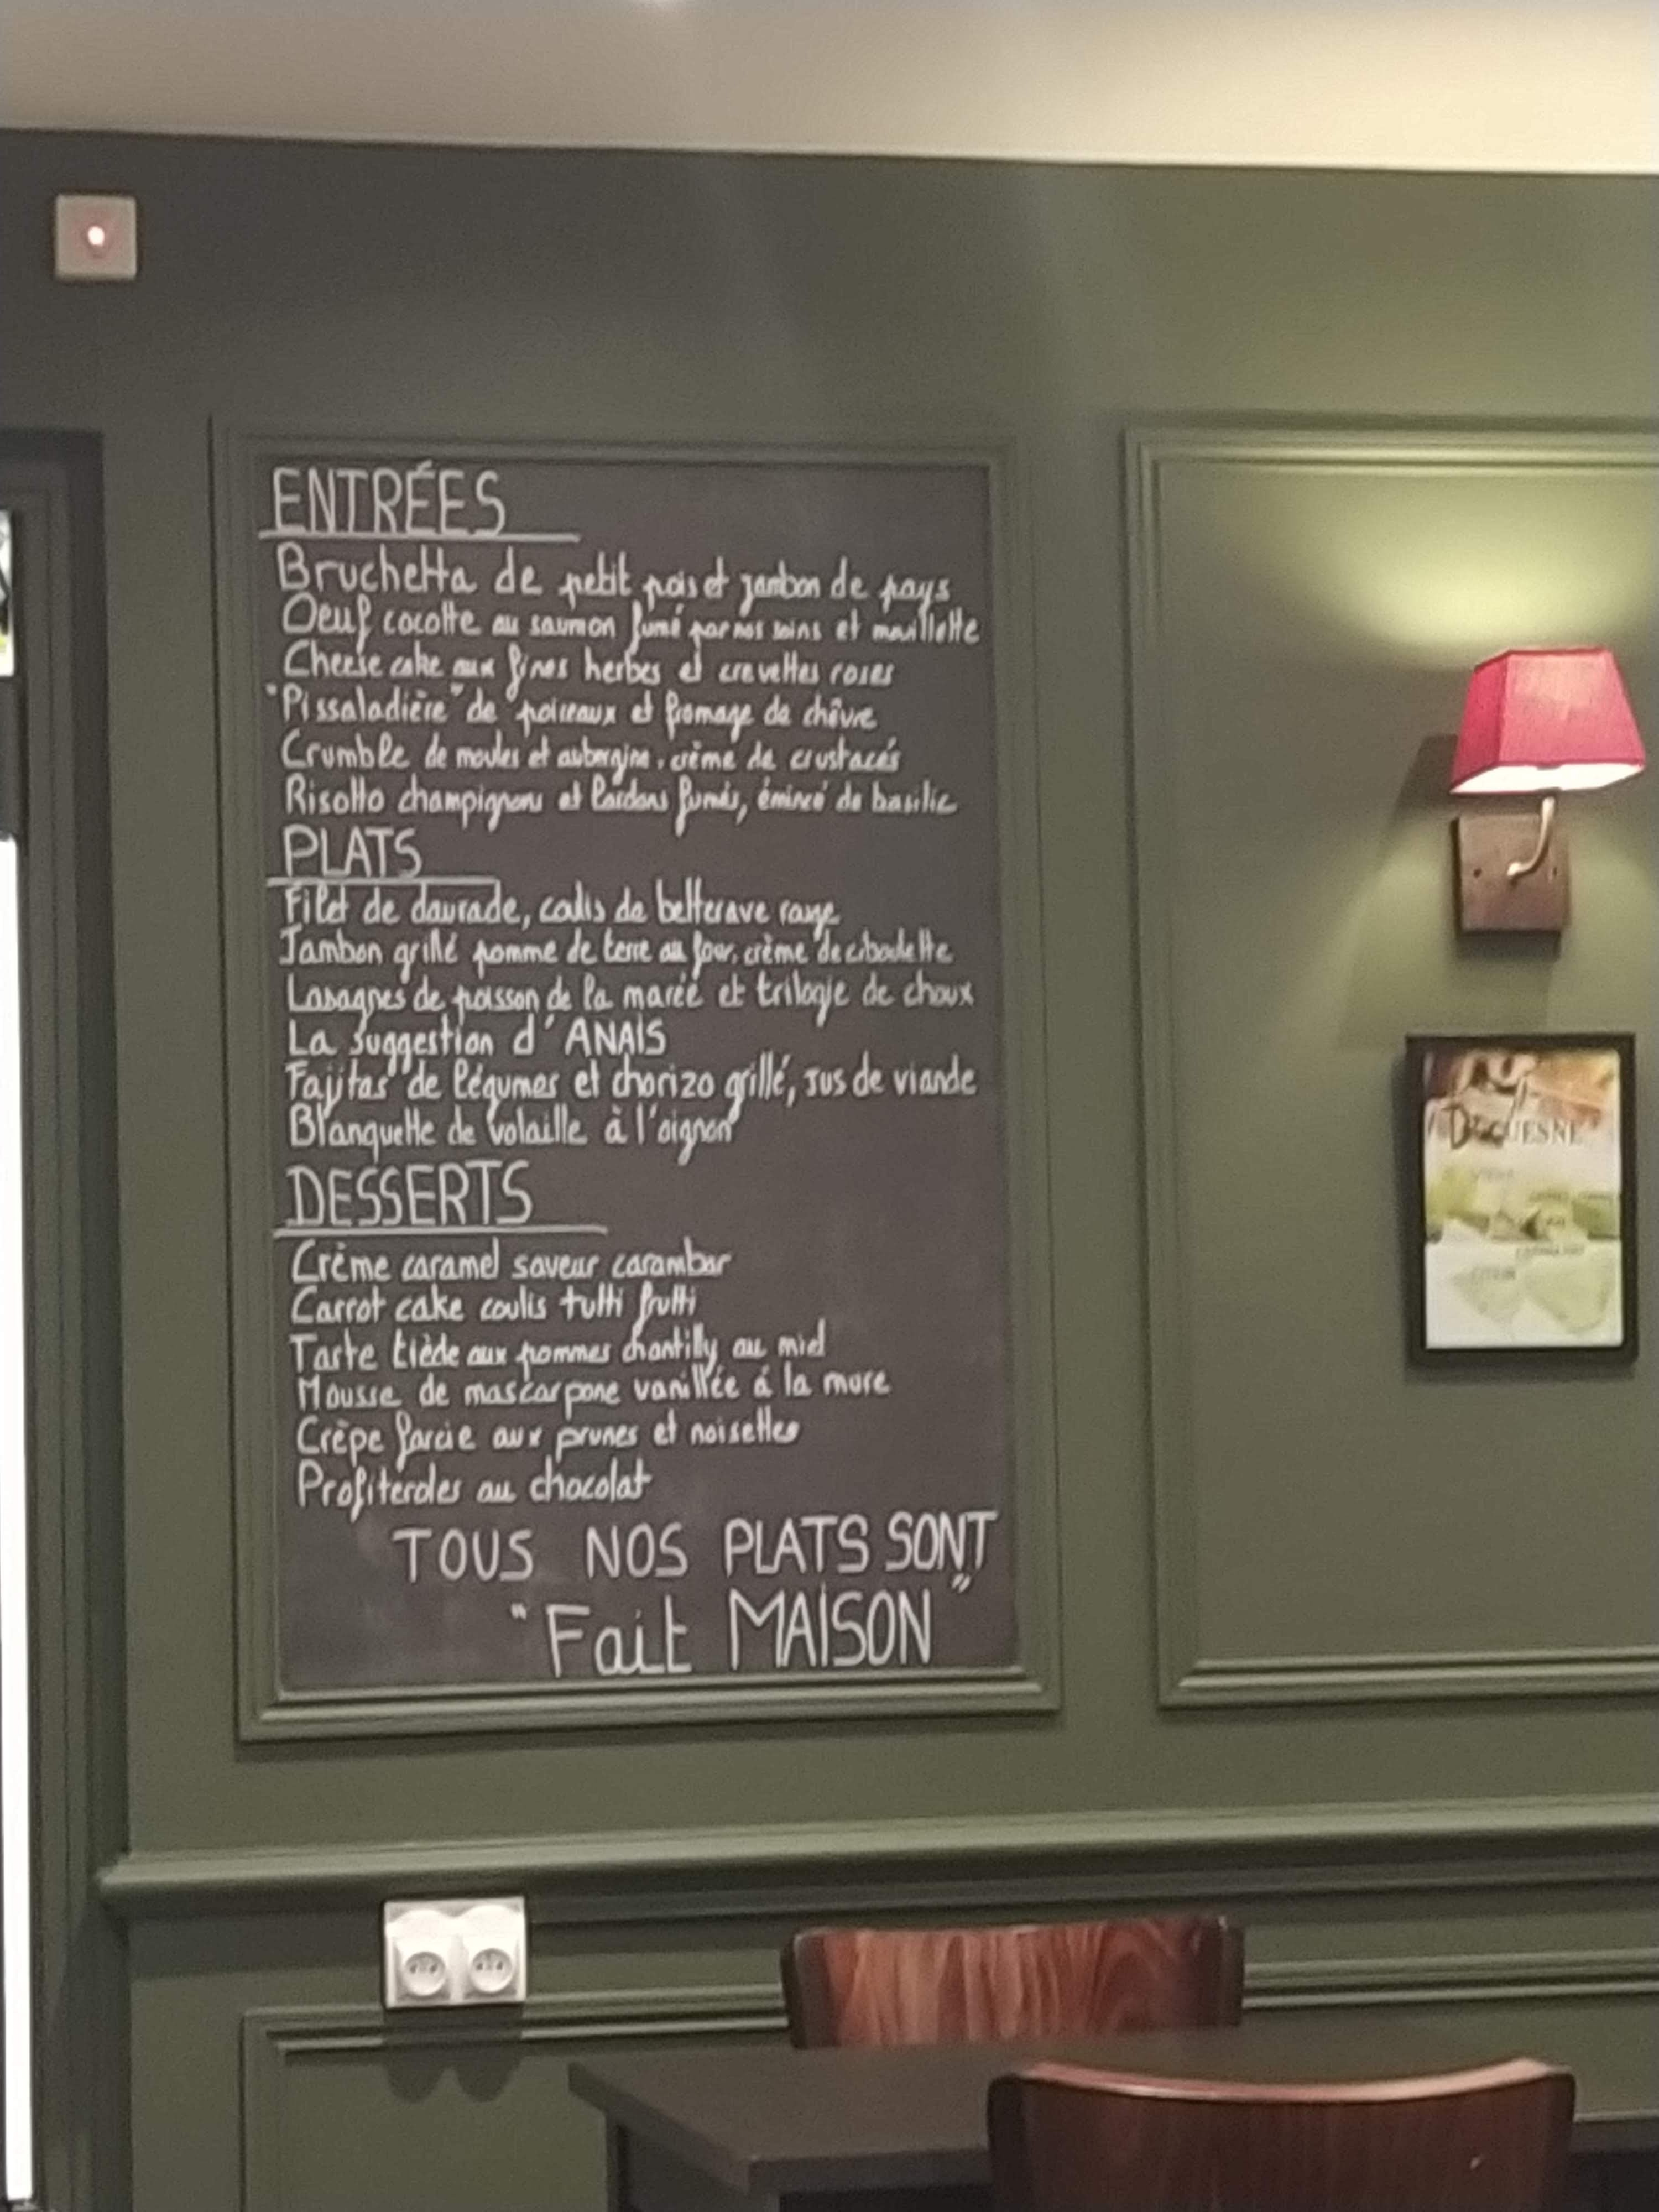 ENTRÉES
Bruchetta de petit pois et jambon de pays
Oeuf cocotte au saumon fumé par nos soins et mouillette
Cheese cake aux fines herbes et crevettes roses
"Pissaladière" de poireaux et fromage de chèvre
Crumble de moules et aubergine, crème de crustacés
Risotto champignons et lardons fumés, émincé de basilic
PLATS
Filet de daurade, coulis de betterave rouge
Jambon grillé pomme de terre au four, crème de ciboulette
Lasagnes de poisson de la marée et trilogie de choux
La suggestion d'ANAIS
Fajitas de légumes et chorizo grillé, jus de viande
Blanquette de volaille à l'oignon
DESSERTS
Crème caramel saveur carambar
Carrot cake coulis tutti frutti
Tarte tiède aux pommes chantilly au miel
Mousse de mascarpone vanillée á la mure
Crèpe farcie aux prunes et noisettes
Profiteroles au chocolat
TOUS NOS PLATS SONT
"Fait MAISON"
DUQUESNE